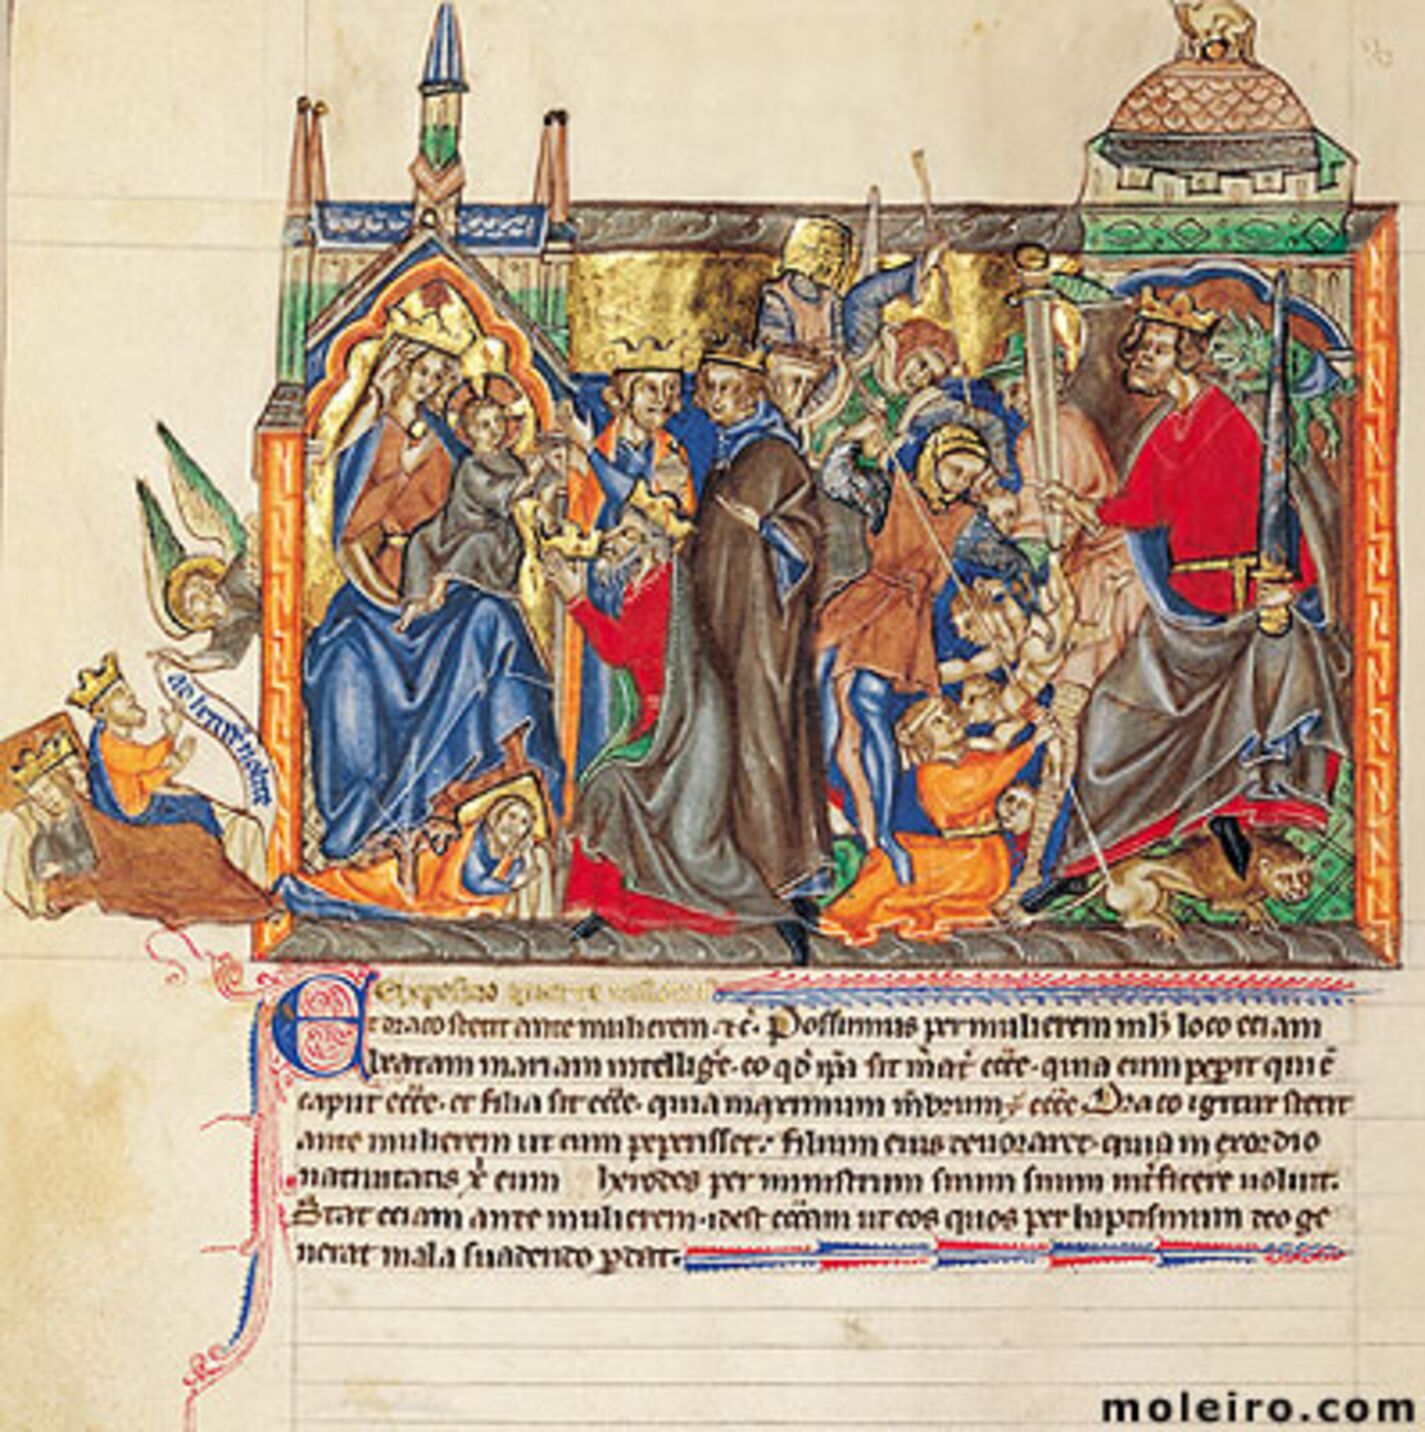 ad herodem ne redire
Expositio
Et draco stetit ante mulierem ⁊ cē. Possumus per mulierem in h̄ loco eciam
beatam mariam intellige. eo qd̄ ip̄a sit mat̄ ecc̄e. quia eum pep̄it qui ē
caput ecc̄e. et filia sit ecc̄e. quia maximum mēbrum ē ecc̄e Draco igitur stetit
ante mulierem ut cum peperisset. filium eius deuoraret. quia in exordio
natiuitatis xp̄i eum herodes per ministrum suum int̄ficere uoluit.
Stat eciam ante mulierem. idest ecc̄am ut eos quos per baptismum deo ge
nerat mala suadendo p̄dat.
moleiro.com